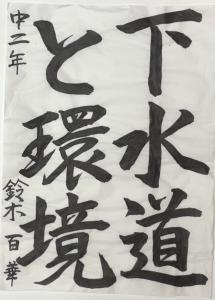 下水道
と環境
中二年
鈴木百華